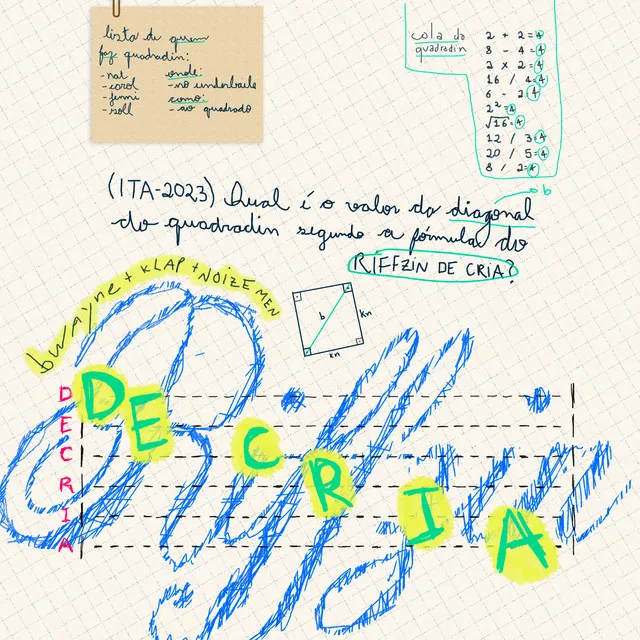 lista de quem
faz quadradin:
-nat
-carol
-jenni
-soll
onde:
-no underbaile
como:
-ao quadrado
cola do
quadradin
2 + 2=4
8 - 4=4
2 x 2=4
16 / 4=4
6 - 2=4
2²=4
√16=4
12 / 3=4
20 / 5=4
8 / 2=4
(ITA-2023) Qual é o valor da diagonal
do quadradin segundo a fórmula do
RIFFZIN DE CRIA?
bwayne+KLAP+NOIZEMEN
b
kn
kn
Riffzin
DECRIA
DE CRIA